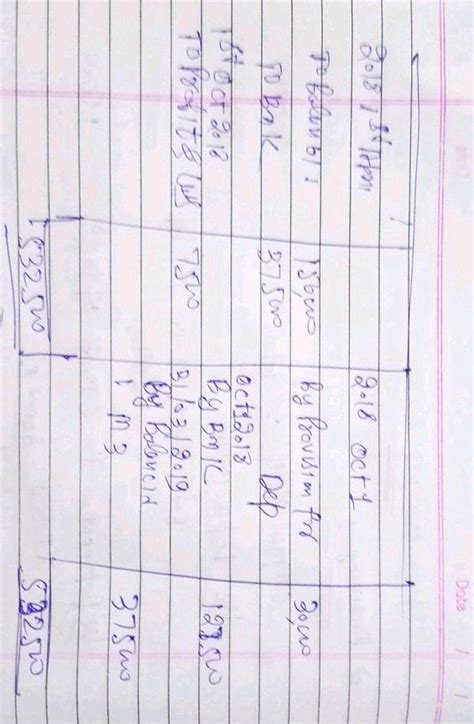 2018 1st April
To Balan b/d
To Bank
1st Oct 2018
To Profit &
150,000
375000
7500
532500
2018 Oct 1
By Provision For
Dep
Oct 1 2018
By Bank
31/03/2019
By Balan c/d
30,000
375000
532500
Date